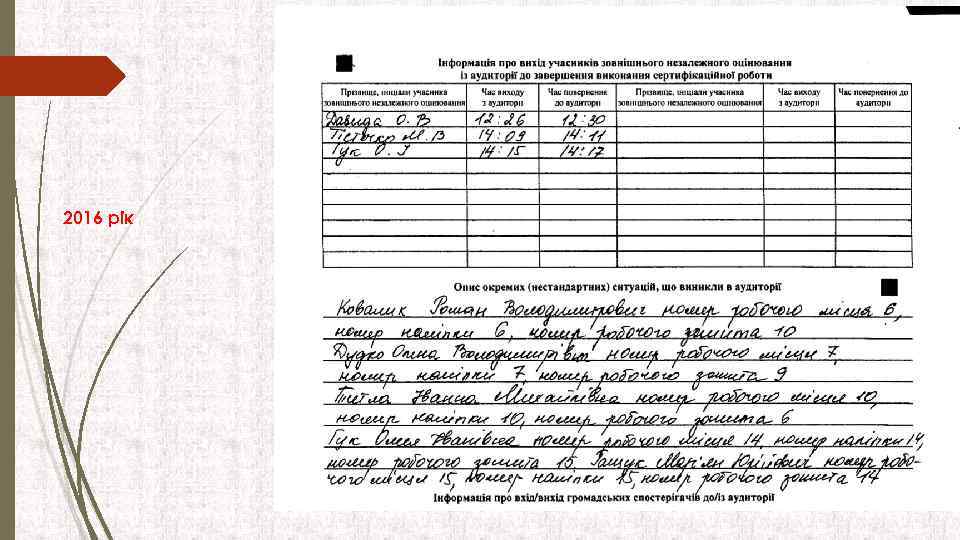 Інформація про вихід учасників зовнішнього незалежного оцінювання
із аудиторії до завершення виконання сертифікаційної роботи
Прізвище, ініціали учасника зовнішнього незалежного оцінювання
Час виходу з аудиторії
Час повернення до аудиторії
Прізвище, ініціали учасника зовнішнього незалежного оцінювання
Час виходу з аудиторії
Час повернення до аудиторії
Давида О. В 12:26 12:30
М. В 14:09 14:11
Гук О. І 14:15 14:17
2016 рік
Опис окремих (нестандартних) ситуацій, що виникли в аудиторії
Ковалик Роман Володимирович номер робочого місця 6,
номер наліпки 6, номер робочого зошита 10
Дудко Олена Володимирівна номер робочого місця 7,
номер наліпки 7, номер робочого зошита 9
Іванна Михайлівна номер робочого місця 10,
номер наліпки 10, номер робочого зошита 6
Гук Олеся Іванівна номер робочого місця 14, номер наліпки 14,
номер робочого зошита 15. Гащук Мар'ян Юрійович номер робо-
чого місця 15, номер наліпки 15, номер робочого зошита 14
Інформація про вхід/вихід громадських спостерігачів до/із аудиторії